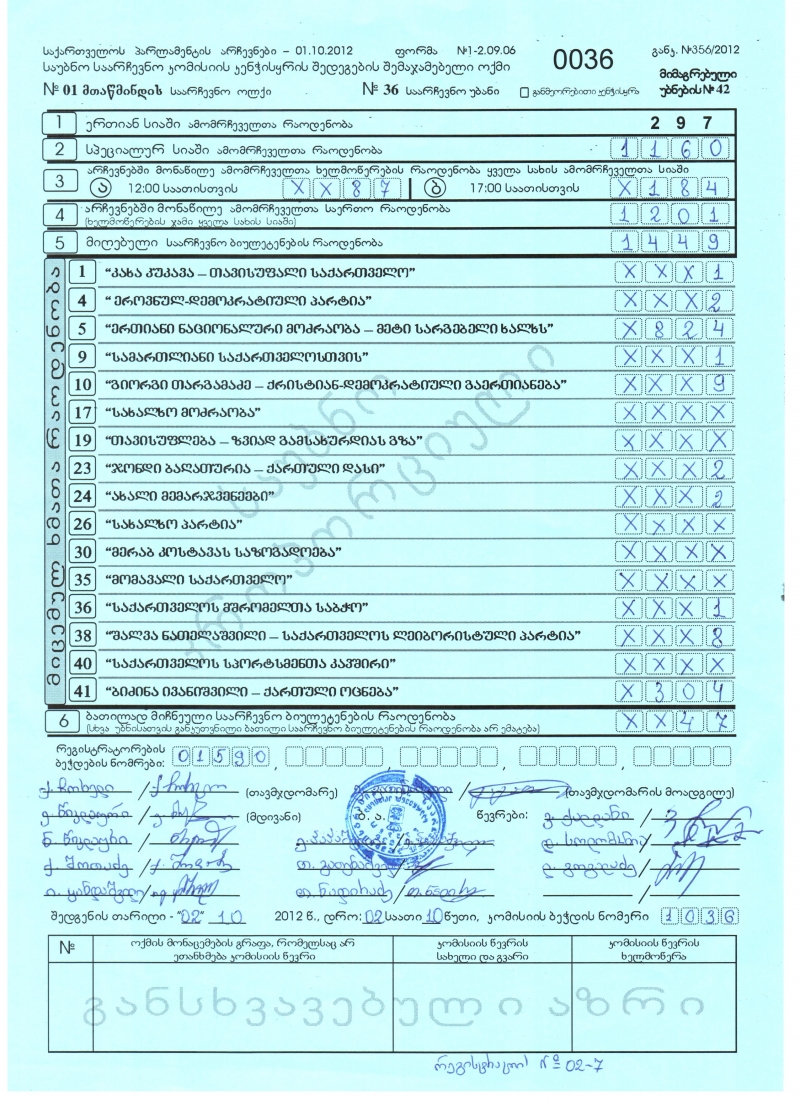 საქართველოს პარლამენტის არჩევნები – 01.10.2012 ფორმა №1-2.09.06 0036 განკ. №356/2012
საუბნო საარჩევნო კომისიის კენჭისყრის შედეგების შემაჯამებელი ოქმი მიმაგრებული
№ 01 მთაწმინდის საარჩევნო ოლქი № 36 საარჩევნო უბანი განმეორებითი კენჭისყრა უბნების № 42
1 ერთიან სიაში ამომრჩეველთა რაოდენობა 297
2 სპეციალურ სიაში ამომრჩეველთა რაოდენობა 1160
3 არჩევნებში მონაწილე ამომრჩეველთა ხელმოწერების რაოდენობა ყველა სახის ამომრჩეველთა სიაში
ა 12:00 საათისთვის XX87 ბ 17:00 საათისთვის X184
4 არჩევნებში მონაწილე ამომრჩეველთა საერთო რაოდენობა 1201
(ხელმოწერების ჯამი ყველა სახის სიაში)
5 მიღებული საარჩევნო ბიულეტენების რაოდენობა 1449
მიცემულ ხმათა რაოდენობა
1 “კახა კუკავა – თავისუფალი საქართველო” XXX1
4 “ეროვნულ-დემოკრატიული პარტია” XXX2
5 “ერთიანი ნაციონალური მოძრაობა – მეტი სარგებელი ხალხს” X824
9 “სამართლიანი საქართველოსთვის” XXX1
10 “გიორგი თარგამაძე – ქრისტიან-დემოკრატიული გაერთიანება” XXX9
17 “სახალხო მოძრაობა” XXXX
19 “თავისუფლება – ზვიად გამსახურდიას გზა” XXXX
23 “ჯონდი ბაღათურია – ქართული დასი” XXX2
24 “ახალი მემარჯვენეები” XXX2
26 “სახალხო პარტია” XXXX
30 “მერაბ კოსტავას საზოგადოება” XXXX
35 “მომავალი საქართველო” XXXX
36 “საქართველოს მშრომელთა საბჭო” XXX1
38 “შალვა ნათელაშვილი – საქართველოს ლეიბორისტული პარტია” XXX8
40 “საქართველოს სპორტსმენთა კავშირი” XXXX
41 “ბიძინა ივანიშვილი – ქართული ოცნება” X304
საუბნო
პროპორციული
6 ბათილად მიჩნეული საარჩევნო ბიულეტენების რაოდენობა XX47
(სხვა უბნისათვის განკუთვნილი ბათილი საარჩევნო ბიულეტენების რაოდენობა არ ემატება)
რეგისტრატორების
ბეჭდების ნომრები: 01590 , , ,
(თავმჯდომარე) (თავმჯდომარის მოადგილე)
(მდივანი) ბ. ა. წევრები:
შედგენის თარიღი - “02” 10 2012 წ., დრო: 02 საათი 10 წუთი, კომისიის ბეჭდის ნომერი 1036
№ ოქმის მონაცემების გრაფა, რომელსაც არ ეთანხმება კომისიის წევრი კომისიის წევრის სახელი და გვარი კომისიის წევრის ხელმოწერა
განსხვავებული აზრი
რეგისტრატორი № 02-7